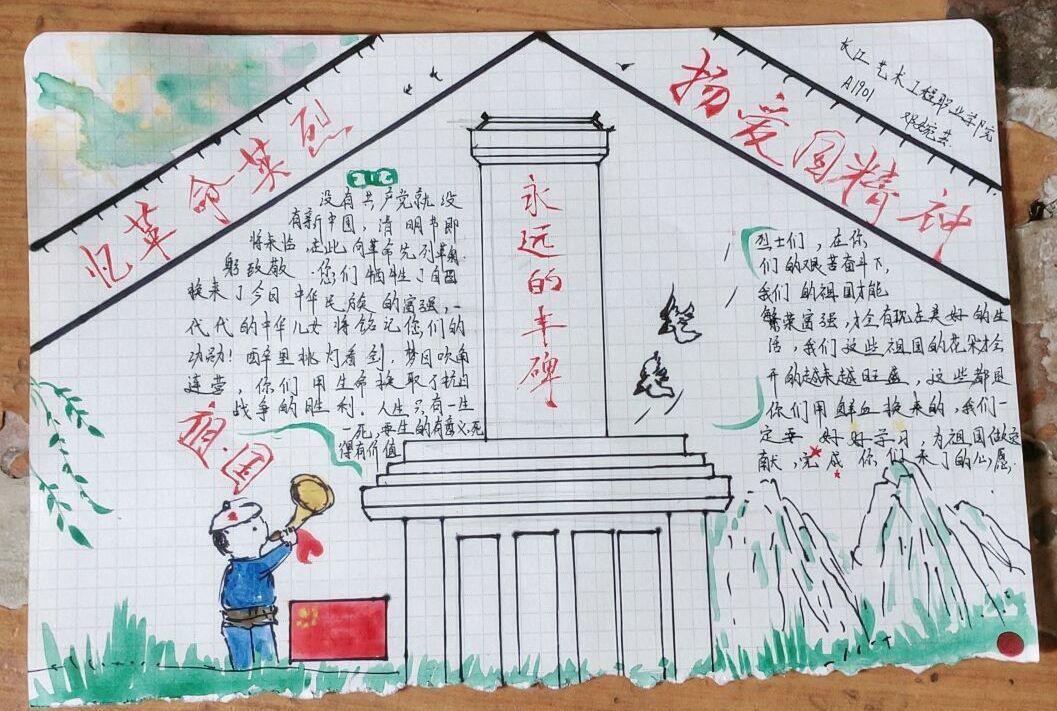 忆革命英烈
扬爱国精神
长江艺术工程职业学院
A1901
永远的丰碑
没有共产党就没
有新中国，清明节即
将来临，在此向革命先烈鞠
躬致敬．您们牺牲了自己
换来了今日中华民族的富强，一
代代的中华儿女将铭记您们的
功勋！醉里挑灯看剑，梦回吹角
连营，你们用生命换取了抗日
战争的胜利．人生只有一生
一死，要生的有意义，死
得有价值
烈士们，在你
们的艰苦奋斗下，
我们的祖国才能
繁荣富强，才会有现在美好的生
活，我们这些祖国的花朵才会
开的越来越旺盛，这些都是
你们用鲜血换来的，我们一
定要好好学习，为祖国做贡
献，完成你们未了的心愿．
国